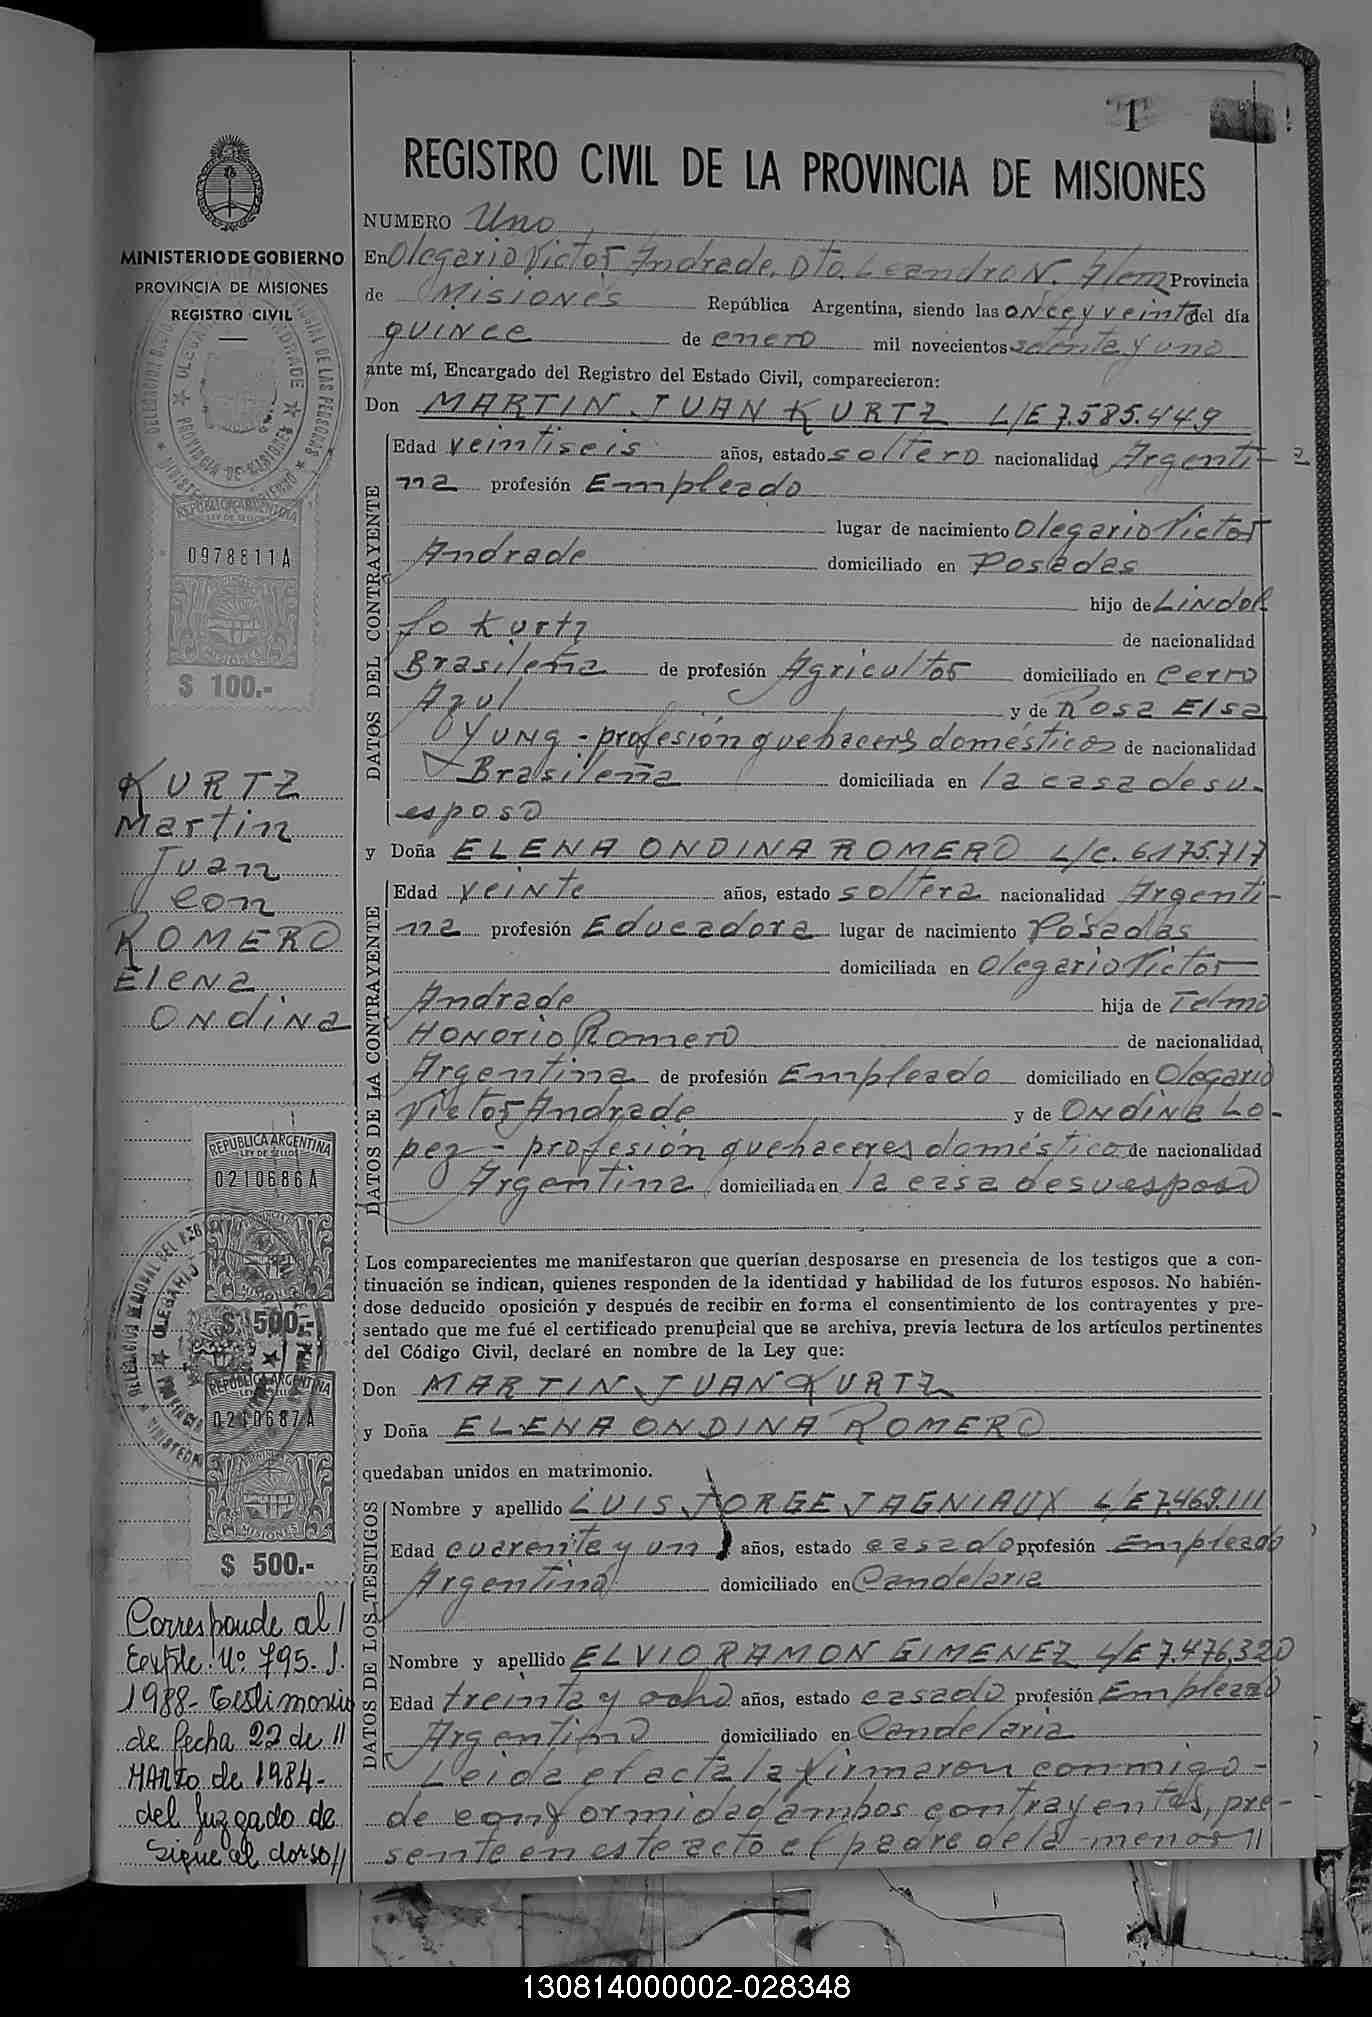 1
REGISTRO CIVIL DE LA PROVINCIA DE MISIONES
MINISTERIO DE GOBIERNO
PROVINCIA DE MISIONES
REGISTRO CIVIL
REPUBLICA ARGENTINA
LEY DE SELLOS
0978811A
MISIONES
$ 100.-
KURTZ
Martin
Juan
con
ROMERO
Elena
Ondina
REPUBLICA ARGENTINA
LEY DE SELLOS
0210686A
MISIONES
$ 500.-
REPUBLICA ARGENTINA
0210687A
MISIONES
$ 500.-
Corresponde al /
Expte. Nº. 795. J.
1988- Testimonio
de fecha 22 de //
MARZO de 1984-
del Juzgado de
Sigue al dorso //
NUMERO Uno
En Olegario Victor Andrade. Dto. Leandro N. Alem Provincia
de MISIONES República Argentina, siendo las once y veinte del día
quince de enero mil novecientos setenta y uno
ante mí, Encargado del Registro del Estado Civil, comparecieron:
Don MARTIN JUAN KURTZ L/E 7.585.449
DATOS DEL CONTRAYENTE
Edad veintiseis años, estado soltero nacionalidad Argenti-
na profesión Empleado
lugar de nacimiento Olegario Victor
Andrade domiciliado en Posadas
hijo de Lindol
fo Kurtz de nacionalidad
Brasileña de profesión Agricultor domiciliado en Cerro
Azul y de Rosa Elsa
Yung - profesión quehaceres domésticos de nacionalidad
Brasileña domiciliada en la casa de su-
esposo
y Doña ELENA ONDINA ROMERO L/C. 6.175.717
DATOS DE LA CONTRAYENTE
Edad veinte años, estado soltera nacionalidad Argenti-
na profesión Educadora lugar de nacimiento Posadas
domiciliada en Olegario Victor
Andrade hija de Telmo
Honorio Romero de nacionalidad
Argentina de profesión Empleado domiciliado en Olegario
Victor Andrade y de Ondina Lo-
pez - profesión quehaceres doméstico de nacionalidad
Argentina domiciliada en la casa de su esposo
Los comparecientes me manifestaron que querían desposarse en presencia de los testigos que a con-
tinuación se indican, quienes responden de la identidad y habilidad de los futuros esposos. No habién-
dose deducido oposición y después de recibir en forma el consentimiento de los contrayentes y pre-
sentado que me fué el certificado prenupcial que se archiva, previa lectura de los artículos pertinentes
del Código Civil, declaré en nombre de la Ley que:
Don MARTIN JUAN KURTZ
y Doña ELENA ONDINA ROMERO
quedaban unidos en matrimonio.
DATOS DE LOS TESTIGOS
Nombre y apellido LUIS JORGE JAGNIAUX L/E 7.469.111
Edad cuarenta y un años, estado casado profesión Empleado
Argentino domiciliado en Candelaria
Nombre y apellido ELVIO RAMON GIMENEZ L/E 7.476.320
Edad treinta y ocho años, estado casado profesión Empleado
Argentino domiciliado en Candelaria
Leida el acta la firmaron conmigo-
de conformidad ambos contrayentes, pre-
sente en este acto el padre de la menor //
130814000002-028348